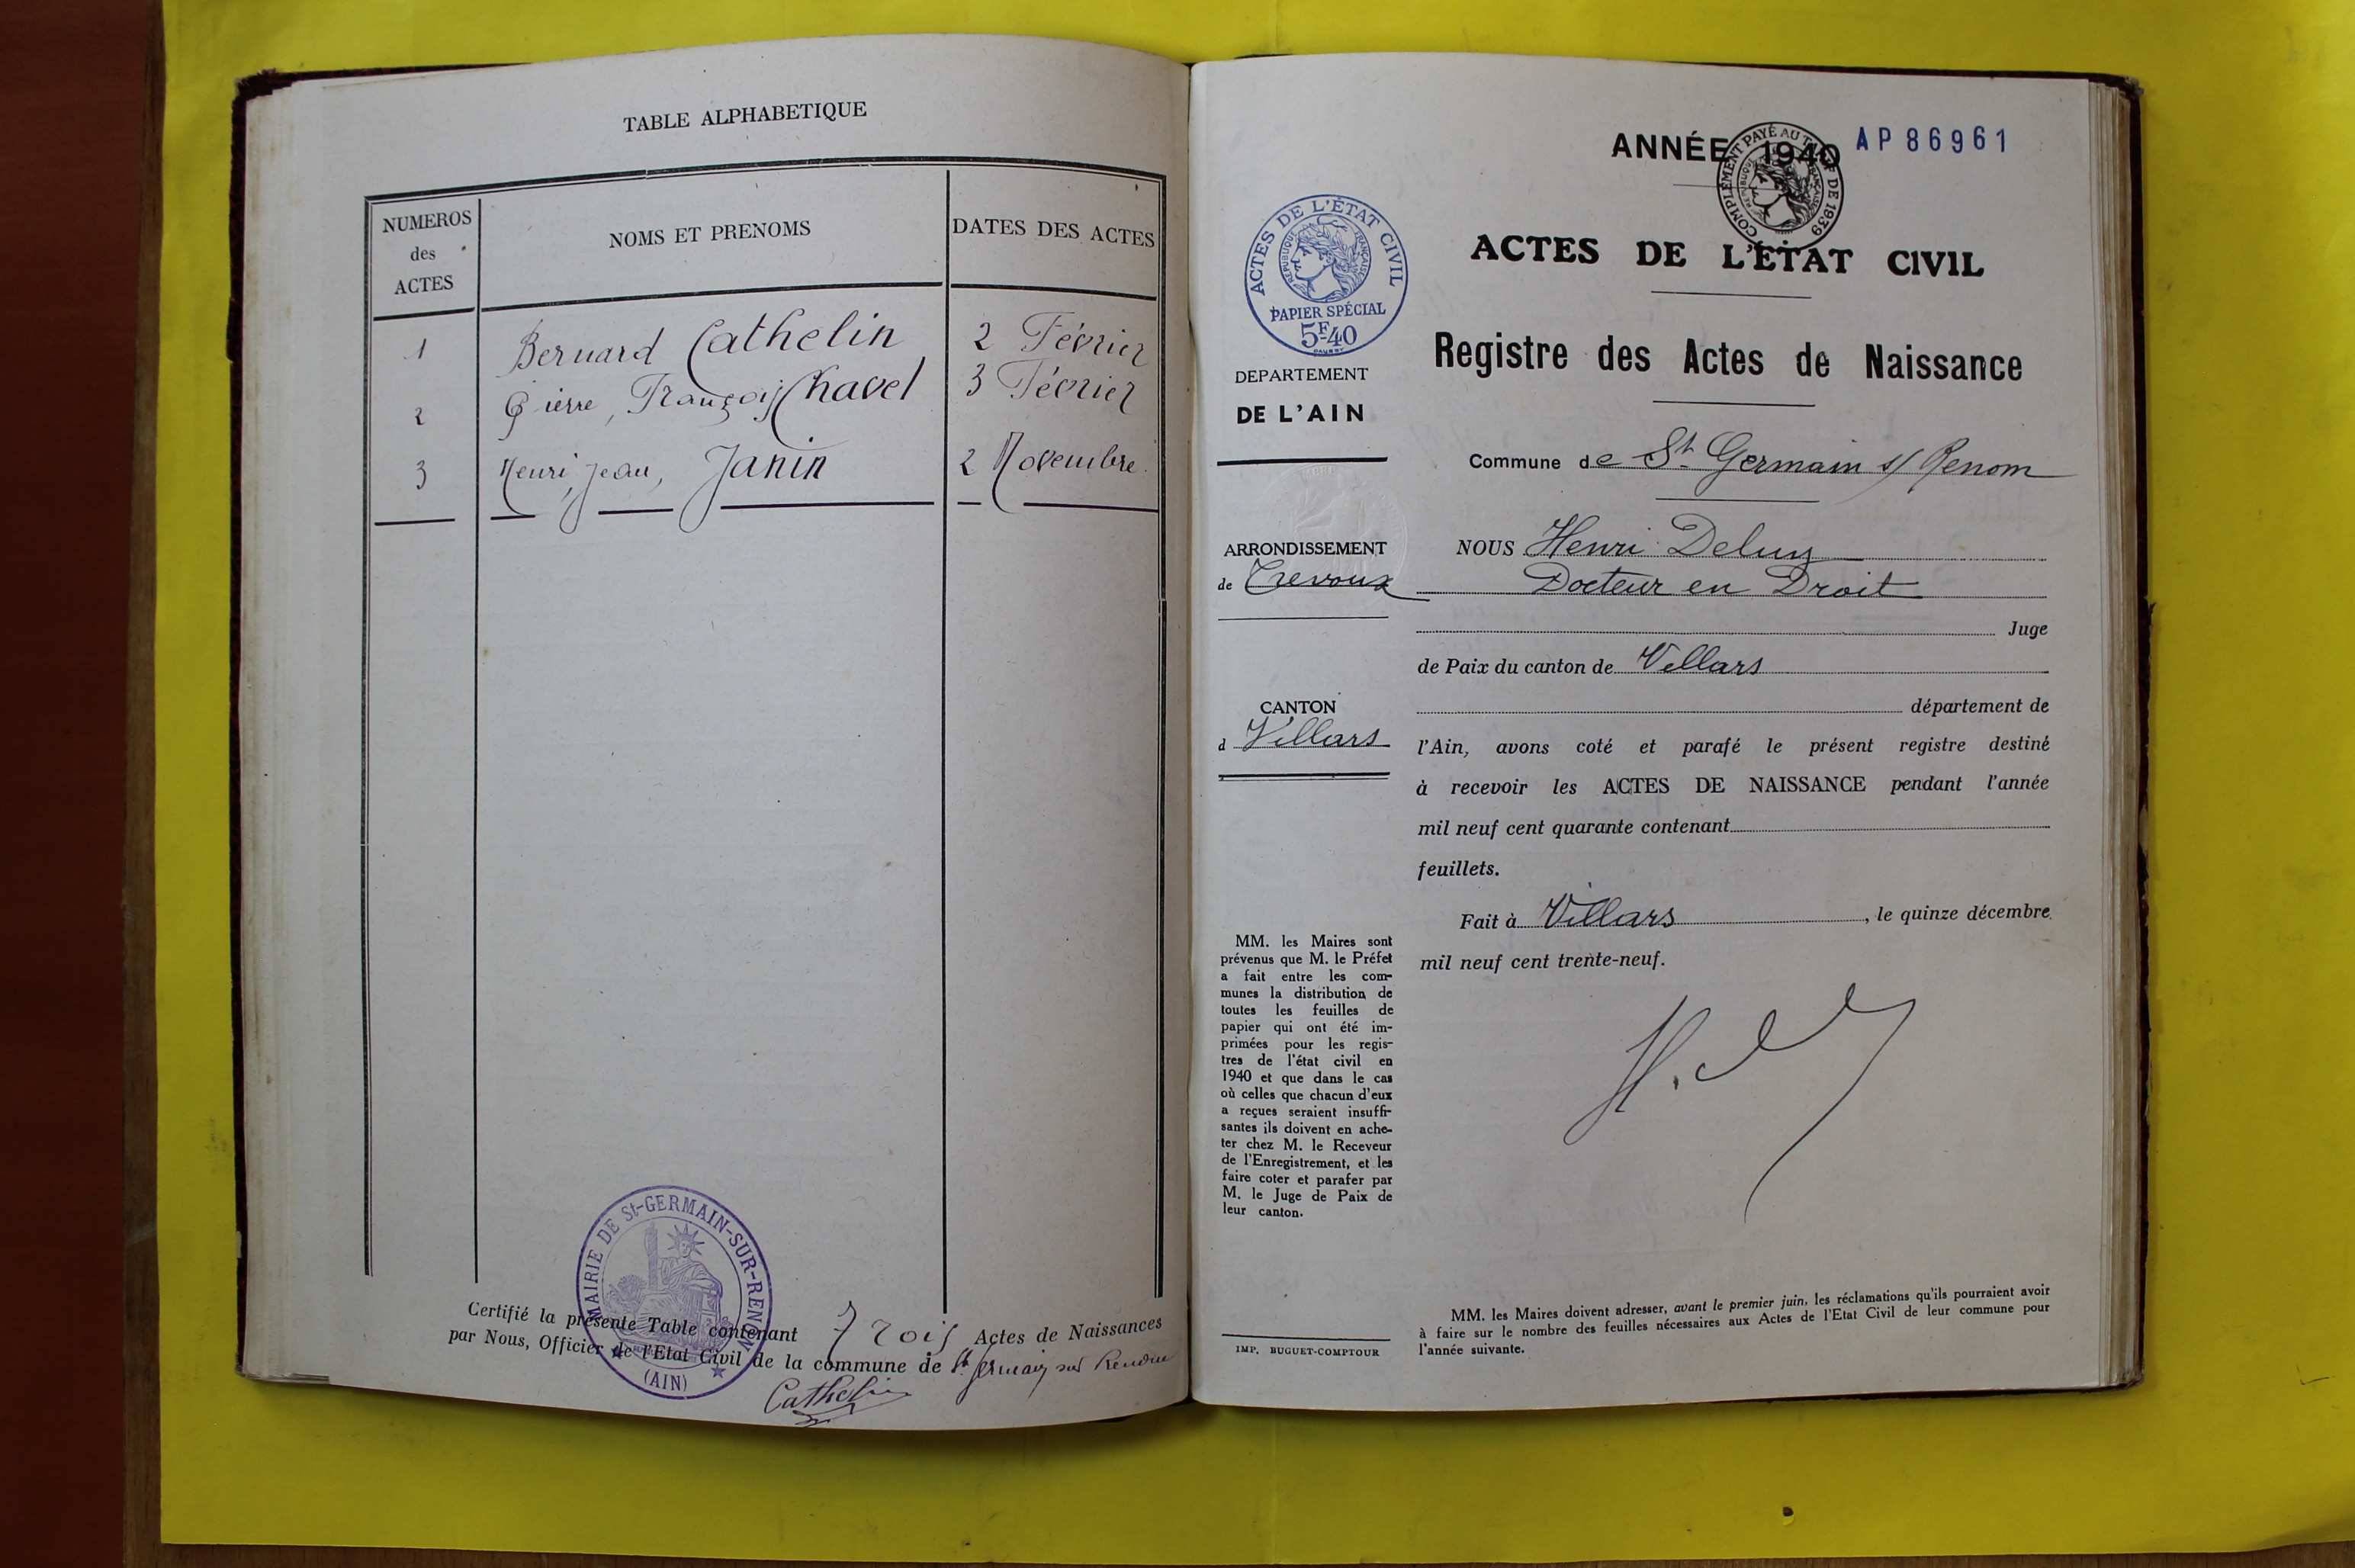 TABLE ALPHABETIQUE
NUMEROS
des
ACTES
NOMS ET PRENOMS
DATES DES ACTES
1 Bernard Cathelin 2 Février
2 Pierre, François Chavel 3 Février
3 Henri, Jean, Janin 2 Novembre.
MAIRIE DE St-GERMAIN-SUR-RENON
(AIN)
Certifié la présente Table contenant Trois Actes de Naissances
par Nous, Officier de l'Etat Civil de la commune de St. Germain sur Renon
Cathelin
ANNÉE 1940
AP86961
COMPLÉMENT PAYÉ AU TARIF DE 1939
RÉPUBLIQUE FRANÇAISE
ACTES DE L'ÉTAT CIVIL
RÉPUBLIQUE FRANÇAISE
PAPIER SPÉCIAL
5F.40
DEPARTEMENT
DE L'AIN
ARRONDISSEMENT
de Trevoux
CANTON
d Villars
MM. les Maires sont
prévenus que M. le Préfet
a fait entre les com-
munes la distribution de
toutes les feuilles de
papier qui ont été im-
primées pour les regis-
tres de l'état civil en
1940 et que dans le cas
où celles que chacun d'eux
a reçues seraient insuffi-
santes ils doivent en ache-
ter chez M. le Receveur
de l'Enregistrement, et les
faire coter et parafer par
M. le Juge de Paix de
leur canton.
IMP. BUGUET-COMPTOUR
ACTES DE L'ÉTAT CIVIL
Registre des Actes de Naissance
Commune de St. Germain s/ Renom
NOUS Henri
Docteur en Droit
Juge
de Paix du canton de Villars
département de
l'Ain, avons coté et parafé le présent registre destiné
à recevoir les ACTES DE NAISSANCE pendant l'année
mil neuf cent quarante contenant
feuillets.
Fait à Villars, le quinze décembre
mil neuf cent trente-neuf.
MM. les Maires doivent adresser, avant le premier juin, les réclamations qu'ils pourraient avoir
à faire sur le nombre des feuilles nécessaires aux Actes de l'Etat Civil de leur commune pour
l'année suivante.